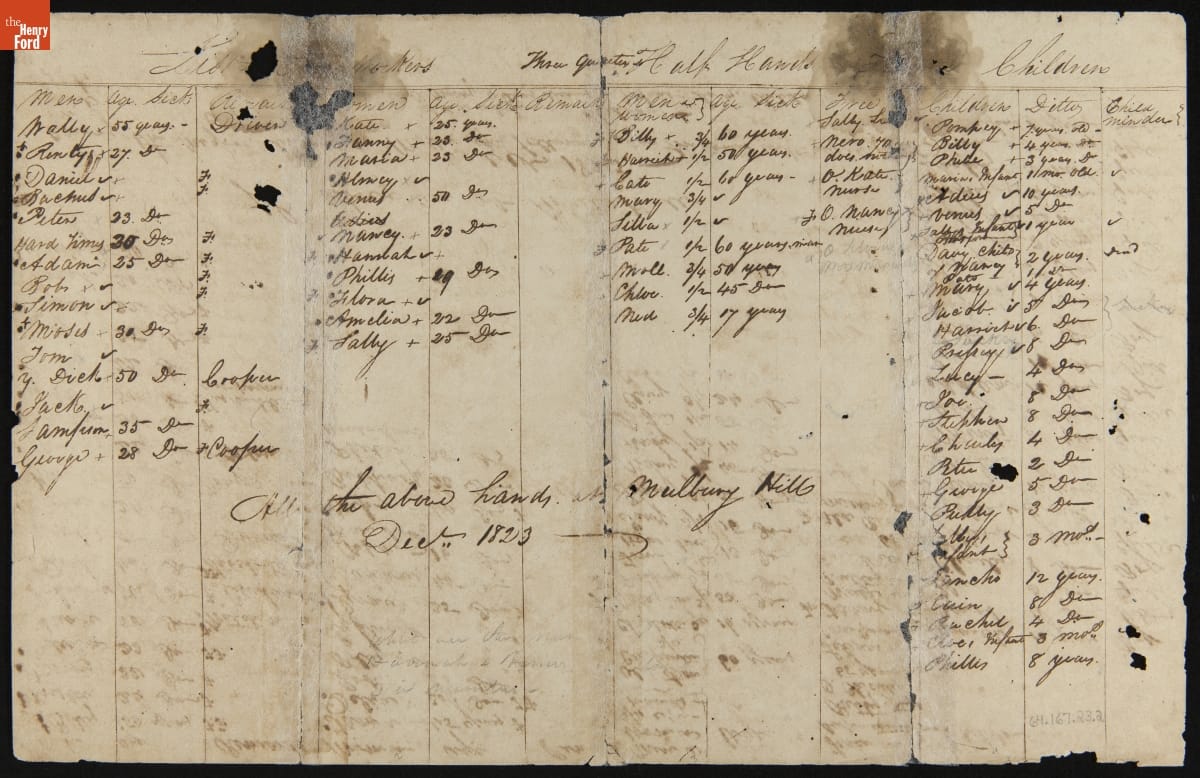 the
Henry
Ford
Workers
Three Quarter & Half Hands
Children
Men Age Sick
Women Age Sick Remark
Men & Women Age Sick Free
Children Ditto Child minder
Wally 55 years. - Driver
Renty 27 Do
Daniel
Bachus
Peter 23 Do
Hard Times 35 Do
Adam 25 Do
Bob
Simon
Moses 30 Do
Tom
Y. Dick 50 Do Cooper
Jack
Sampson 35 Do
George 28 Do Cooper
Kate 25 years.
Fanny 23 Do
Maria 23 Do
Almey
Venus 50 Do
Nancy 23 Do
Hannah
Phillis 19 Do
Flora
Amelia 22 Do
Sally 25 Do
Billy 3/4 60 years.
Harriet 1/2 50 years.
Cato 1/2 60 years
Mary 3/4
Silla 1/2
Pate 1/2 60 years. man
Moll 3/4 50 years
Chloe 1/2 45 Do
Ned 3/4 17 years
Nero 70
does not
O. Kate
Nurse
O. Nancy
Nurse
Pompey 7 years old
Billy 4 years Do
Phebe 3 years Do
Marias Infant 11 mo. old
10 years.
Venus 5 Do
Sallys Infant 1 year
Davy child of Nancy 2 years. dead
Mary 4 years.
Jacob 5 Do
Harriet 6 Do
Prissy 8 Do
Lucy 4 Do
Joe 8 Do
Stephen 8 Do
Charles 4 Do
Peter 2 Do
George 5 Do
3 Do
Infant 3 mos.
Sancho 12 years.
Cain 8 Do
Rachel 4 Do
Cloes Infant 3 mos.
Phillis 8 years.
All the above hands at Mulbury Hill
Decr. 1823
64.167.23.2